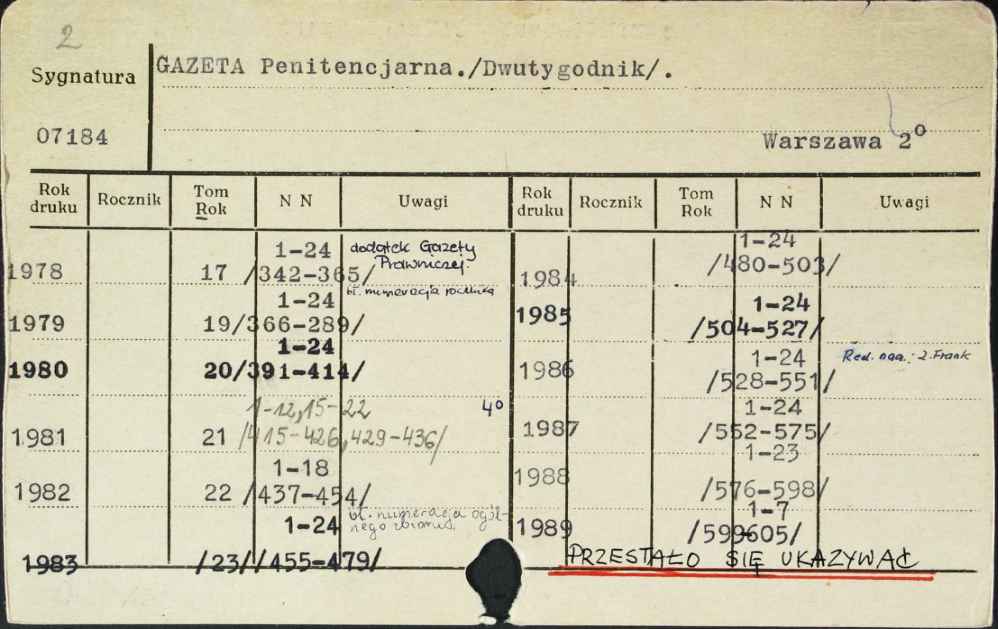 2
Sygnatura
GAZETA Penitencjarna./Dwutygodnik/.
07184
Warszawa 2º
Rok druku Rocznik Tom Rok N N Uwagi Rok druku Rocznik Tom Rok N N Uwagi
1-24 dodatek Gazety
Prawniczej.
1978 17 /342-365/
bł. numeracja rocznika
1-24
1979 19/366-289/
1-24
1980 20/391-414/
1-12,15-22 4º
1981 21 /415-426,429-436/
1-18
1982 22 /437-454/
1-24 bł. numeracja ogól-
nego zbioru.
1983 /23//455-479/
1-24
1984 /480-503/
1-24
1985 /504-527/
1-24 Red. : Z. Frank
1986 /528-551/
1-24
1987 /552-575/
1-23
1988 /576-598/
1-7
1989 /599-605/
PRZESTAŁO SIĘ UKAZYWAĆ